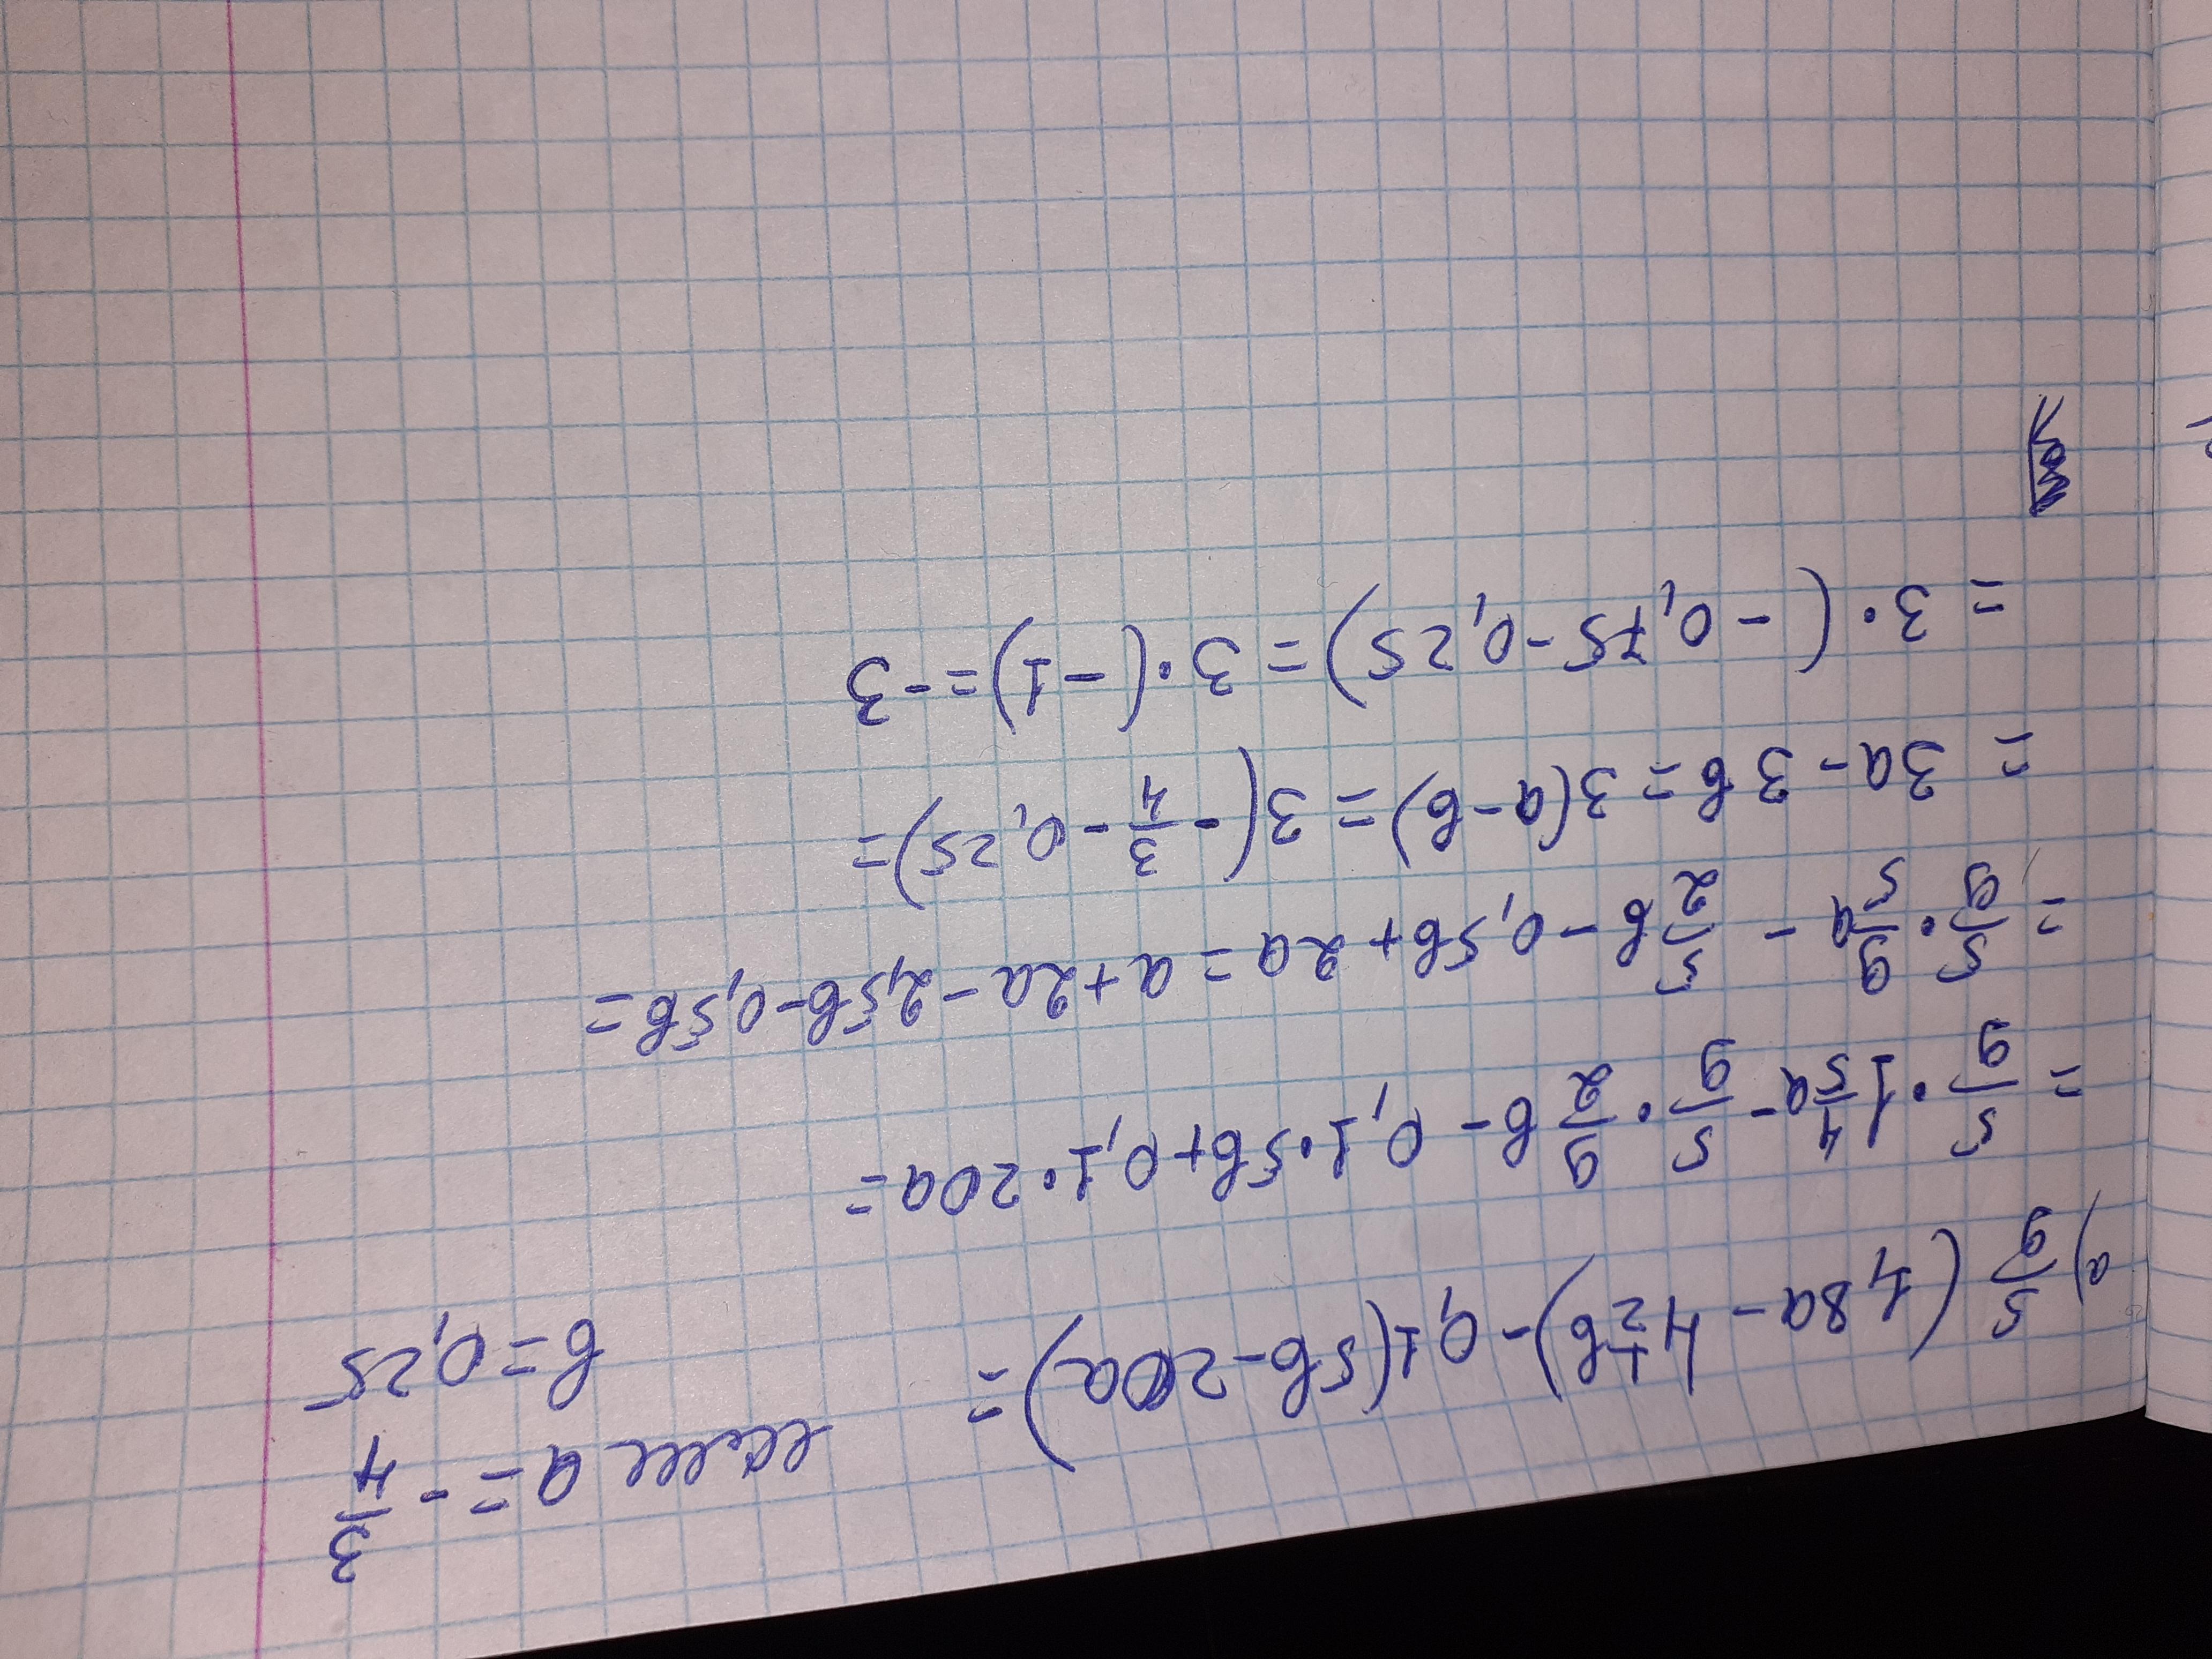 a) 5/9 (1,8a - 4 1/2 в) - 0,1(5в - 20a) =
если a = - 3/4
в = 0,25
= 5/9 · 1 4/5 a - 5/9 · 9/2 в - 0,1 · 5в + 0,1 · 20a =
= 5/9 · 9/5 a - 5/2 в - 0,5в + 2a = a + 2a - 2,5в - 0,5в =
= 3a - 3в = 3(a - в) = 3(- 3/4 - 0,25) =
= 3 · (- 0,75 - 0,25) = 3 · (- 1) = - 3